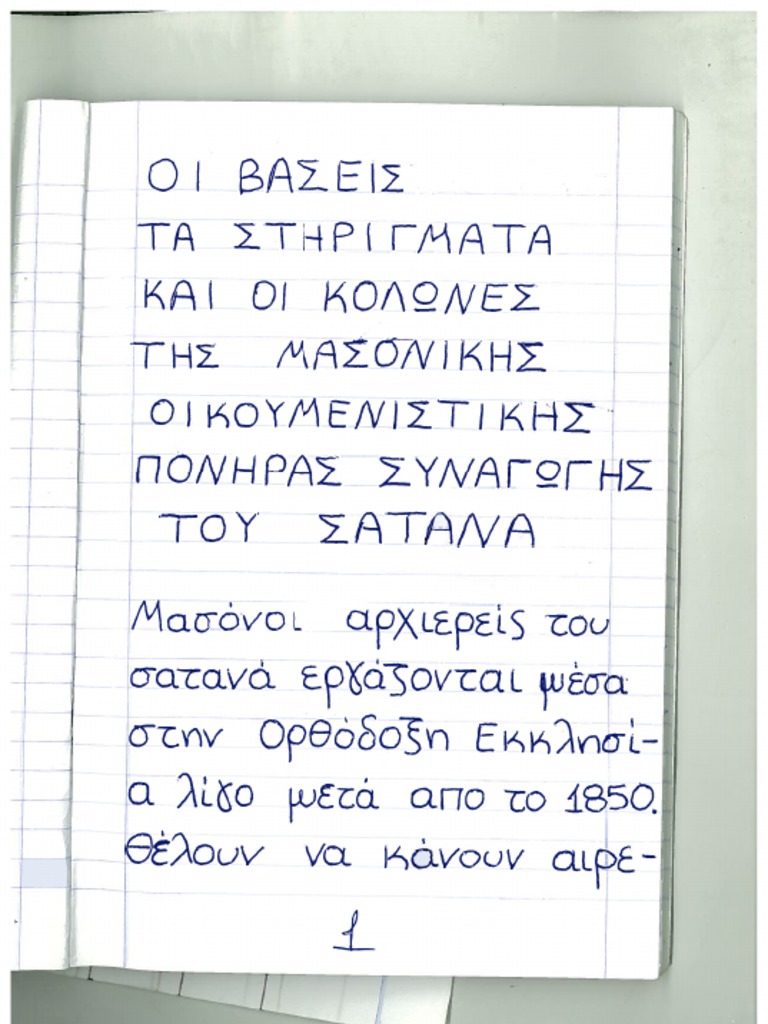 ΟΙ ΒΑΣΕΙΣ
ΤΑ ΣΤΗΡΙΓΜΑΤΑ
ΚΑΙ ΟΙ ΚΟΛΩΝΕΣ
ΤΗΣ ΜΑΣΟΝΙΚΗΣ
ΟΙΚΟΥΜΕΝΙΣΤΙΚΗΣ
ΠΟΝΗΡΑΣ ΣΥΝΑΓΩΓΗΣ
ΤΟΥ ΣΑΤΑΝΑ
Μασόνοι αρχιερείς του
σατανά εργάζονται μέσα
στην Ορθόδοξη Εκκλησί-
α λίγο μετά απο το 1850.
Θέλουν να κάνουν αιρε-
1